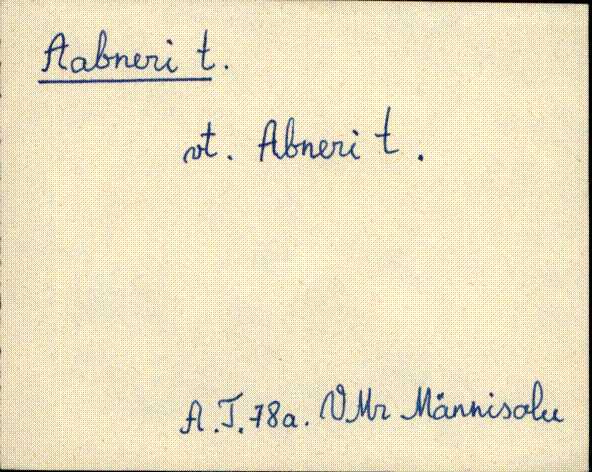 Aabneri t.
vt. Abneri t.
A.T. 78a. VMr Männisalu